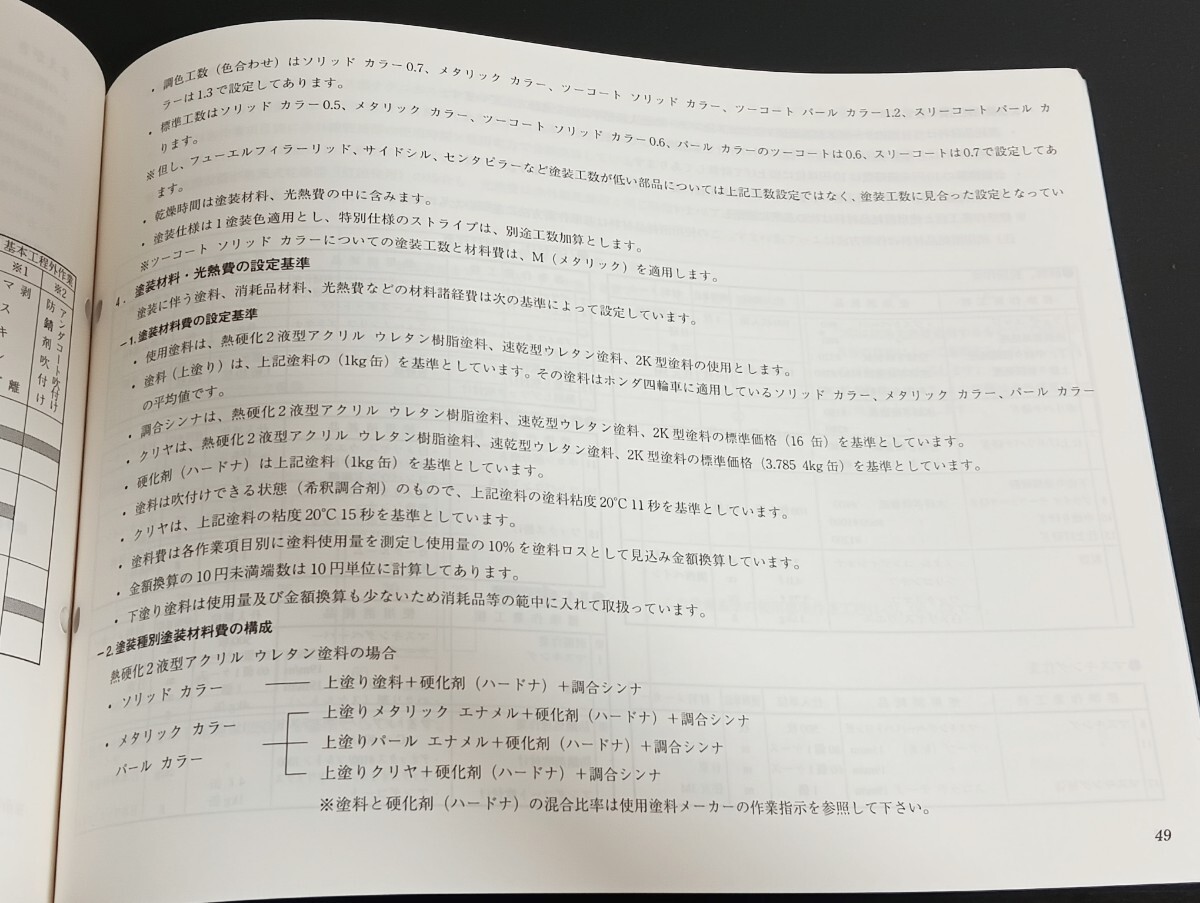 基本工程外作業
※1
※2
マス
キン
剥離
アンダコート吹付け
防錆剤吹付け
・調色工数(色合わせ)はソリッド カラー0.7、メタリック カラー、ツーコート ソリッド カラー、ツーコート パール カラー1.2、スリーコート パール カ
ラーは1.3で設定してあります。
・標準工数はソリッド カラー0.5、メタリック カラー、ツーコート ソリッド カラー0.6、パール カラーのツーコートは0.6、スリーコートは0.7で設定してあ
ります。
※但し、フューエルフィラーリッド、サイドシル、センタピラーなど塗装工数が低い部品については上記工数設定ではなく、塗装工数に見合った設定となってい
ます。
・乾燥時間は塗装材料、光熱費の中に含みます。
・塗装仕様は1塗装色適用とし、特別仕様のストライプは、別途工数加算とします。
※ツーコート ソリッド カラーについての塗装工数と材料費は、M(メタリック)を適用します。
4. 塗装材料・光熱費の設定基準
塗装に伴う塗料、消耗品材料、光熱費などの材料諸経費は次の基準によって設定しています。
-1.塗装材料費の設定基準
・使用塗料は、熱硬化2液型アクリル ウレタン樹脂塗料、速乾型ウレタン塗料、2K型塗料の使用とします。
・塗料(上塗り)は、上記塗料の(1kg缶)を基準としています。その塗料はホンダ四輪車に適用しているソリッド カラー、メタリック カラー、パール カラー
の平均値です。
・調合シンナは、熱硬化2液型アクリル ウレタン樹脂塗料、速乾型ウレタン塗料、2K型塗料の標準価格(16 缶)を基準としています。
・クリヤは、熱硬化2液型アクリル ウレタン樹脂塗料、速乾型ウレタン塗料、2K型塗料の標準価格(3.785 4kg缶)を基準としています。
・硬化剤(ハードナ)は上記塗料(1kg缶)を基準としています。
・塗料は吹付けできる状態(希釈調合剤)のもので、上記塗料の塗料粘度20℃ 11秒を基準としています。
・クリヤは、上記塗料の粘度20℃ 15秒を基準としています。
・塗料費は各作業項目別に塗料使用量を測定し使用量の10%を塗料ロスとして見込み金額換算しています。
・金額換算の10円未満端数は10円単位に計算してあります。
・下塗り塗料は使用量及び金額換算も少ないため消耗品等の範中に入れて取扱っています。
-2.塗装種別塗装材料費の構成
熱硬化2液型アクリル ウレタン塗料の場合
・ソリッド カラー ―― 上塗り塗料+硬化剤(ハードナ)+調合シンナ
・メタリック カラー 上塗りメタリック エナメル+硬化剤(ハードナ)+調合シンナ
パール カラー 上塗りパール エナメル+硬化剤(ハードナ)+調合シンナ
上塗りクリヤ+硬化剤(ハードナ)+調合シンナ
※塗料と硬化剤(ハードナ)の混合比率は使用塗料メーカーの作業指示を参照して下さい。
49